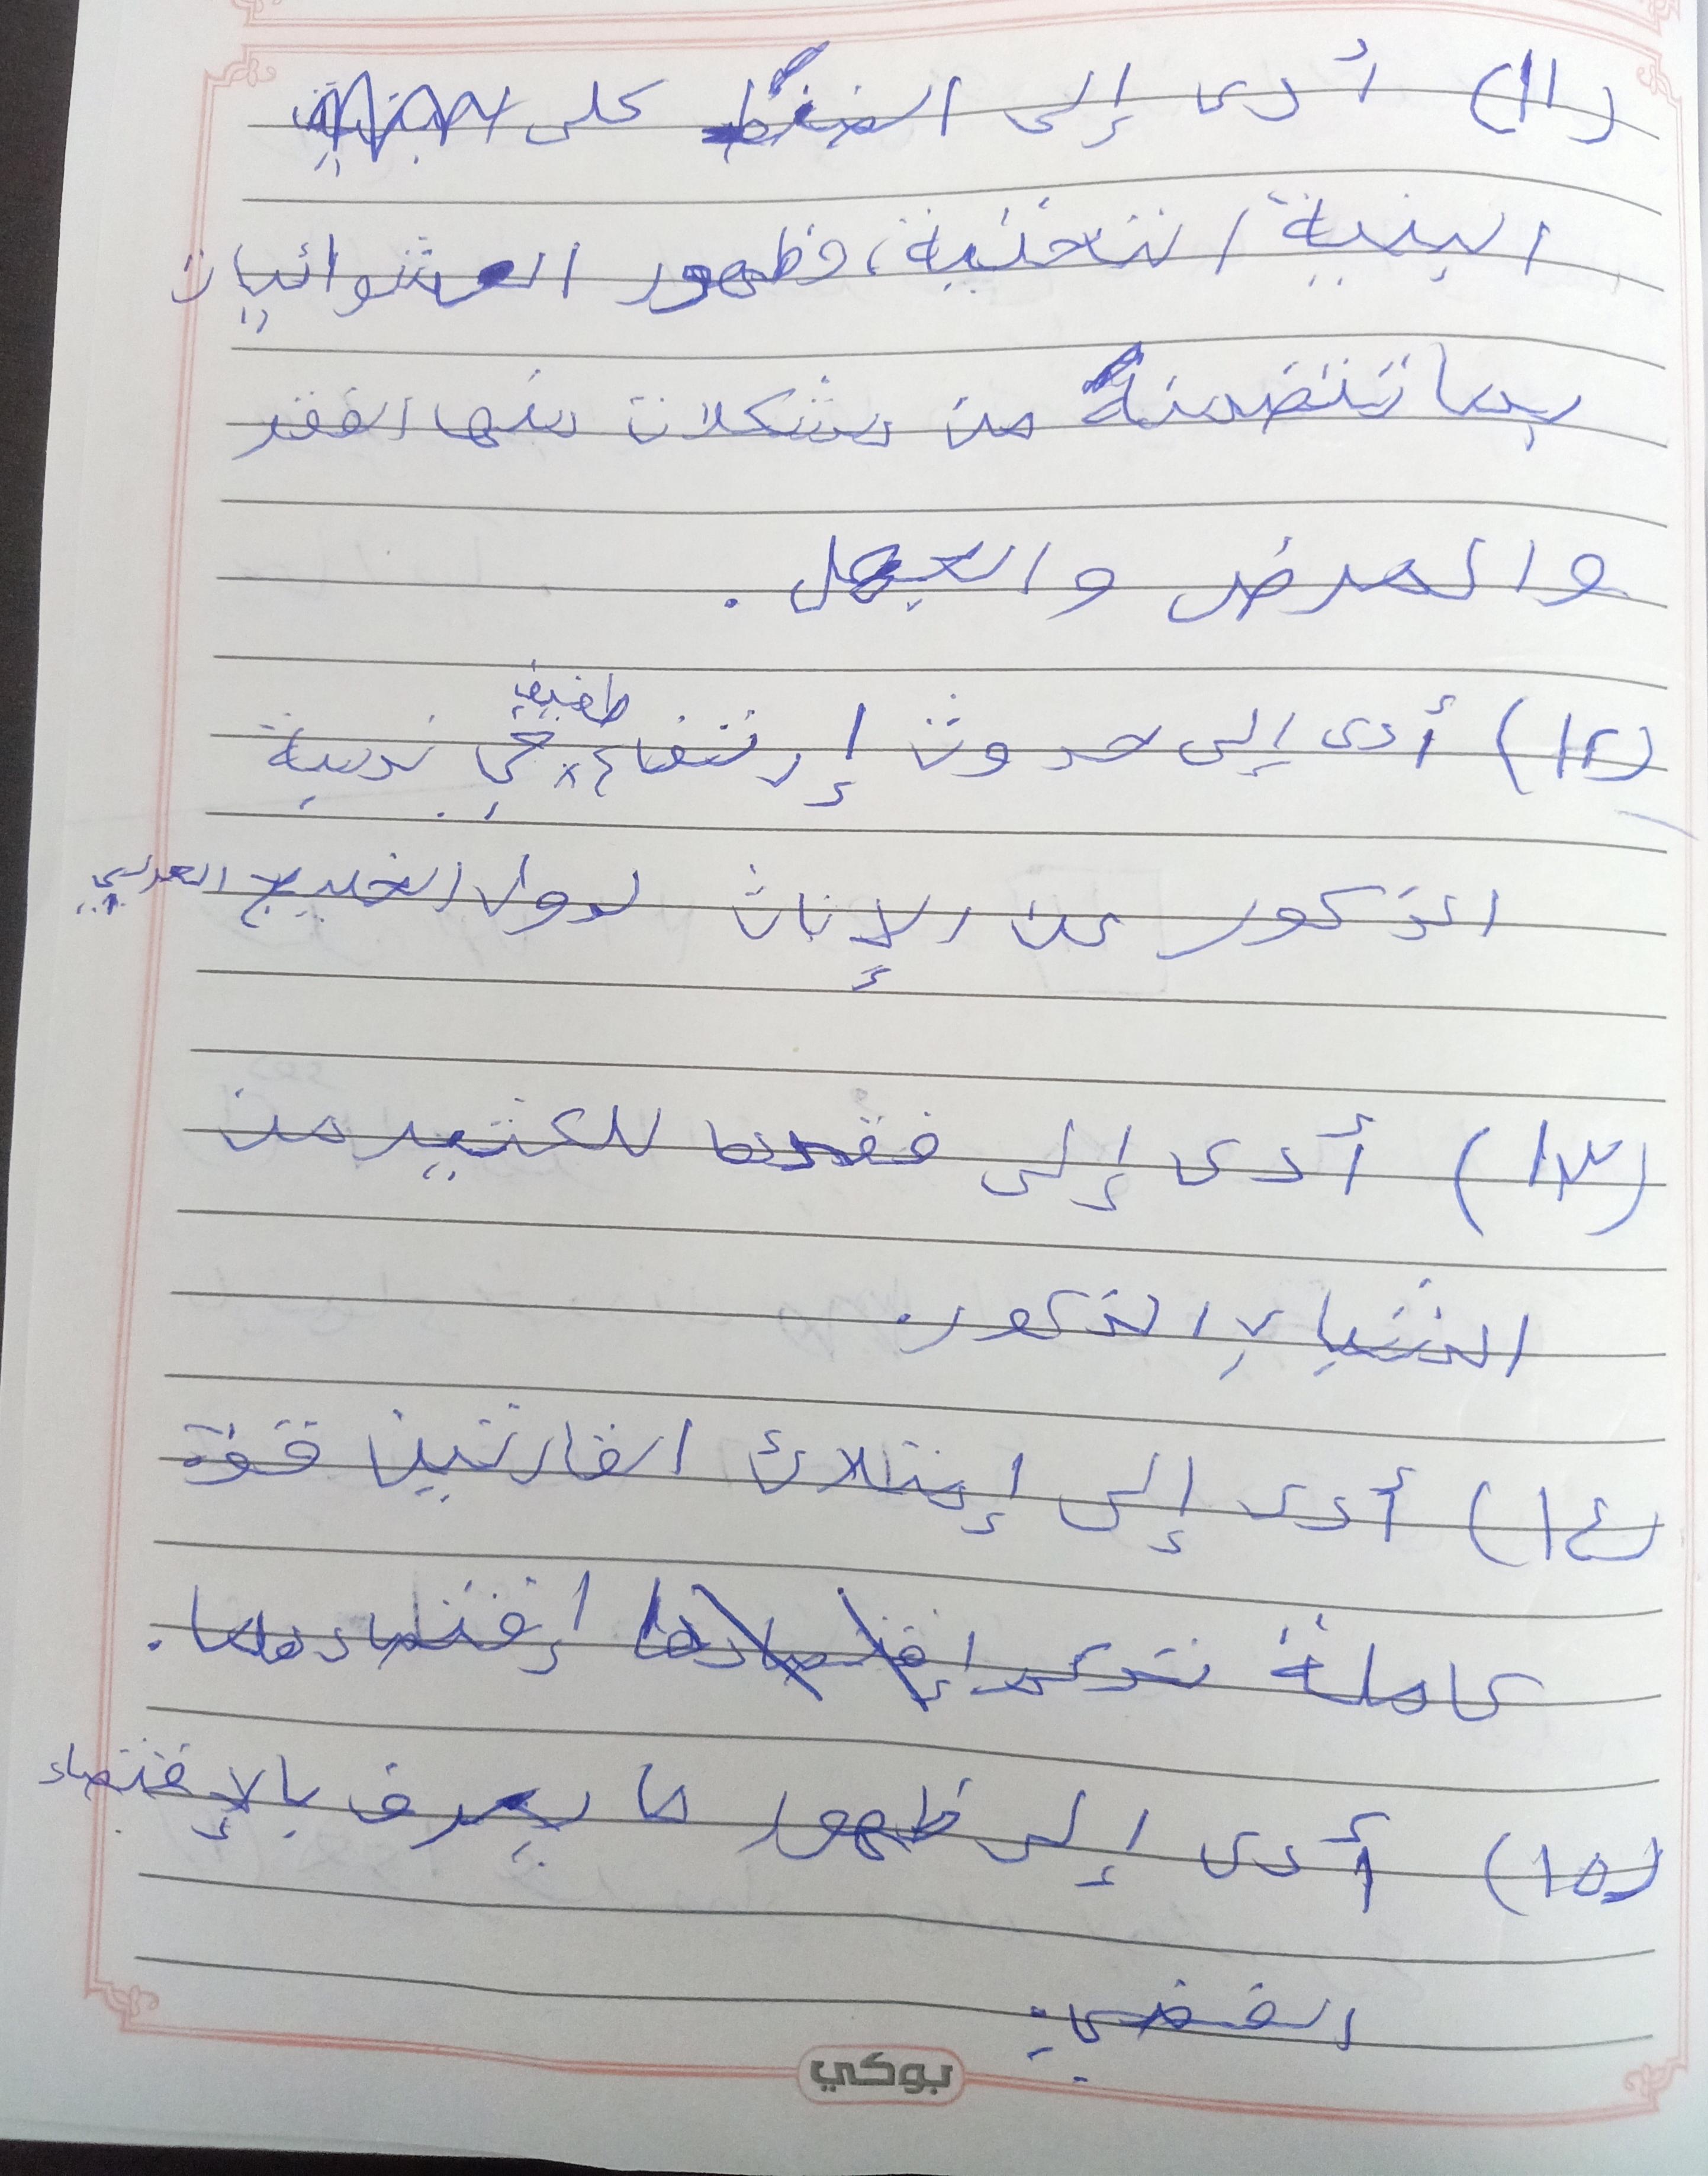 (١١) أدى إلى الضغط على
البنية التحتية، وظهور العشوائيات
بما تتضمنه من مشكلات منها الفقر
والمرض والجهل .
(١٢) أدى إلى حدوث إرتفاع طفيف في نسبة
الذكور عن الإناث لدول الخليج العربي
(١٣) أدى إلى فقدها للكثير من
الشباب الذكور.
(١٤) أدى إلى إمتلاك القارتين قوة
عاملة تدعم إقتصادهما.
(١٥) أدى إلى ظهور ما يعرف بالإقتصاد
الفضي.
بوكي